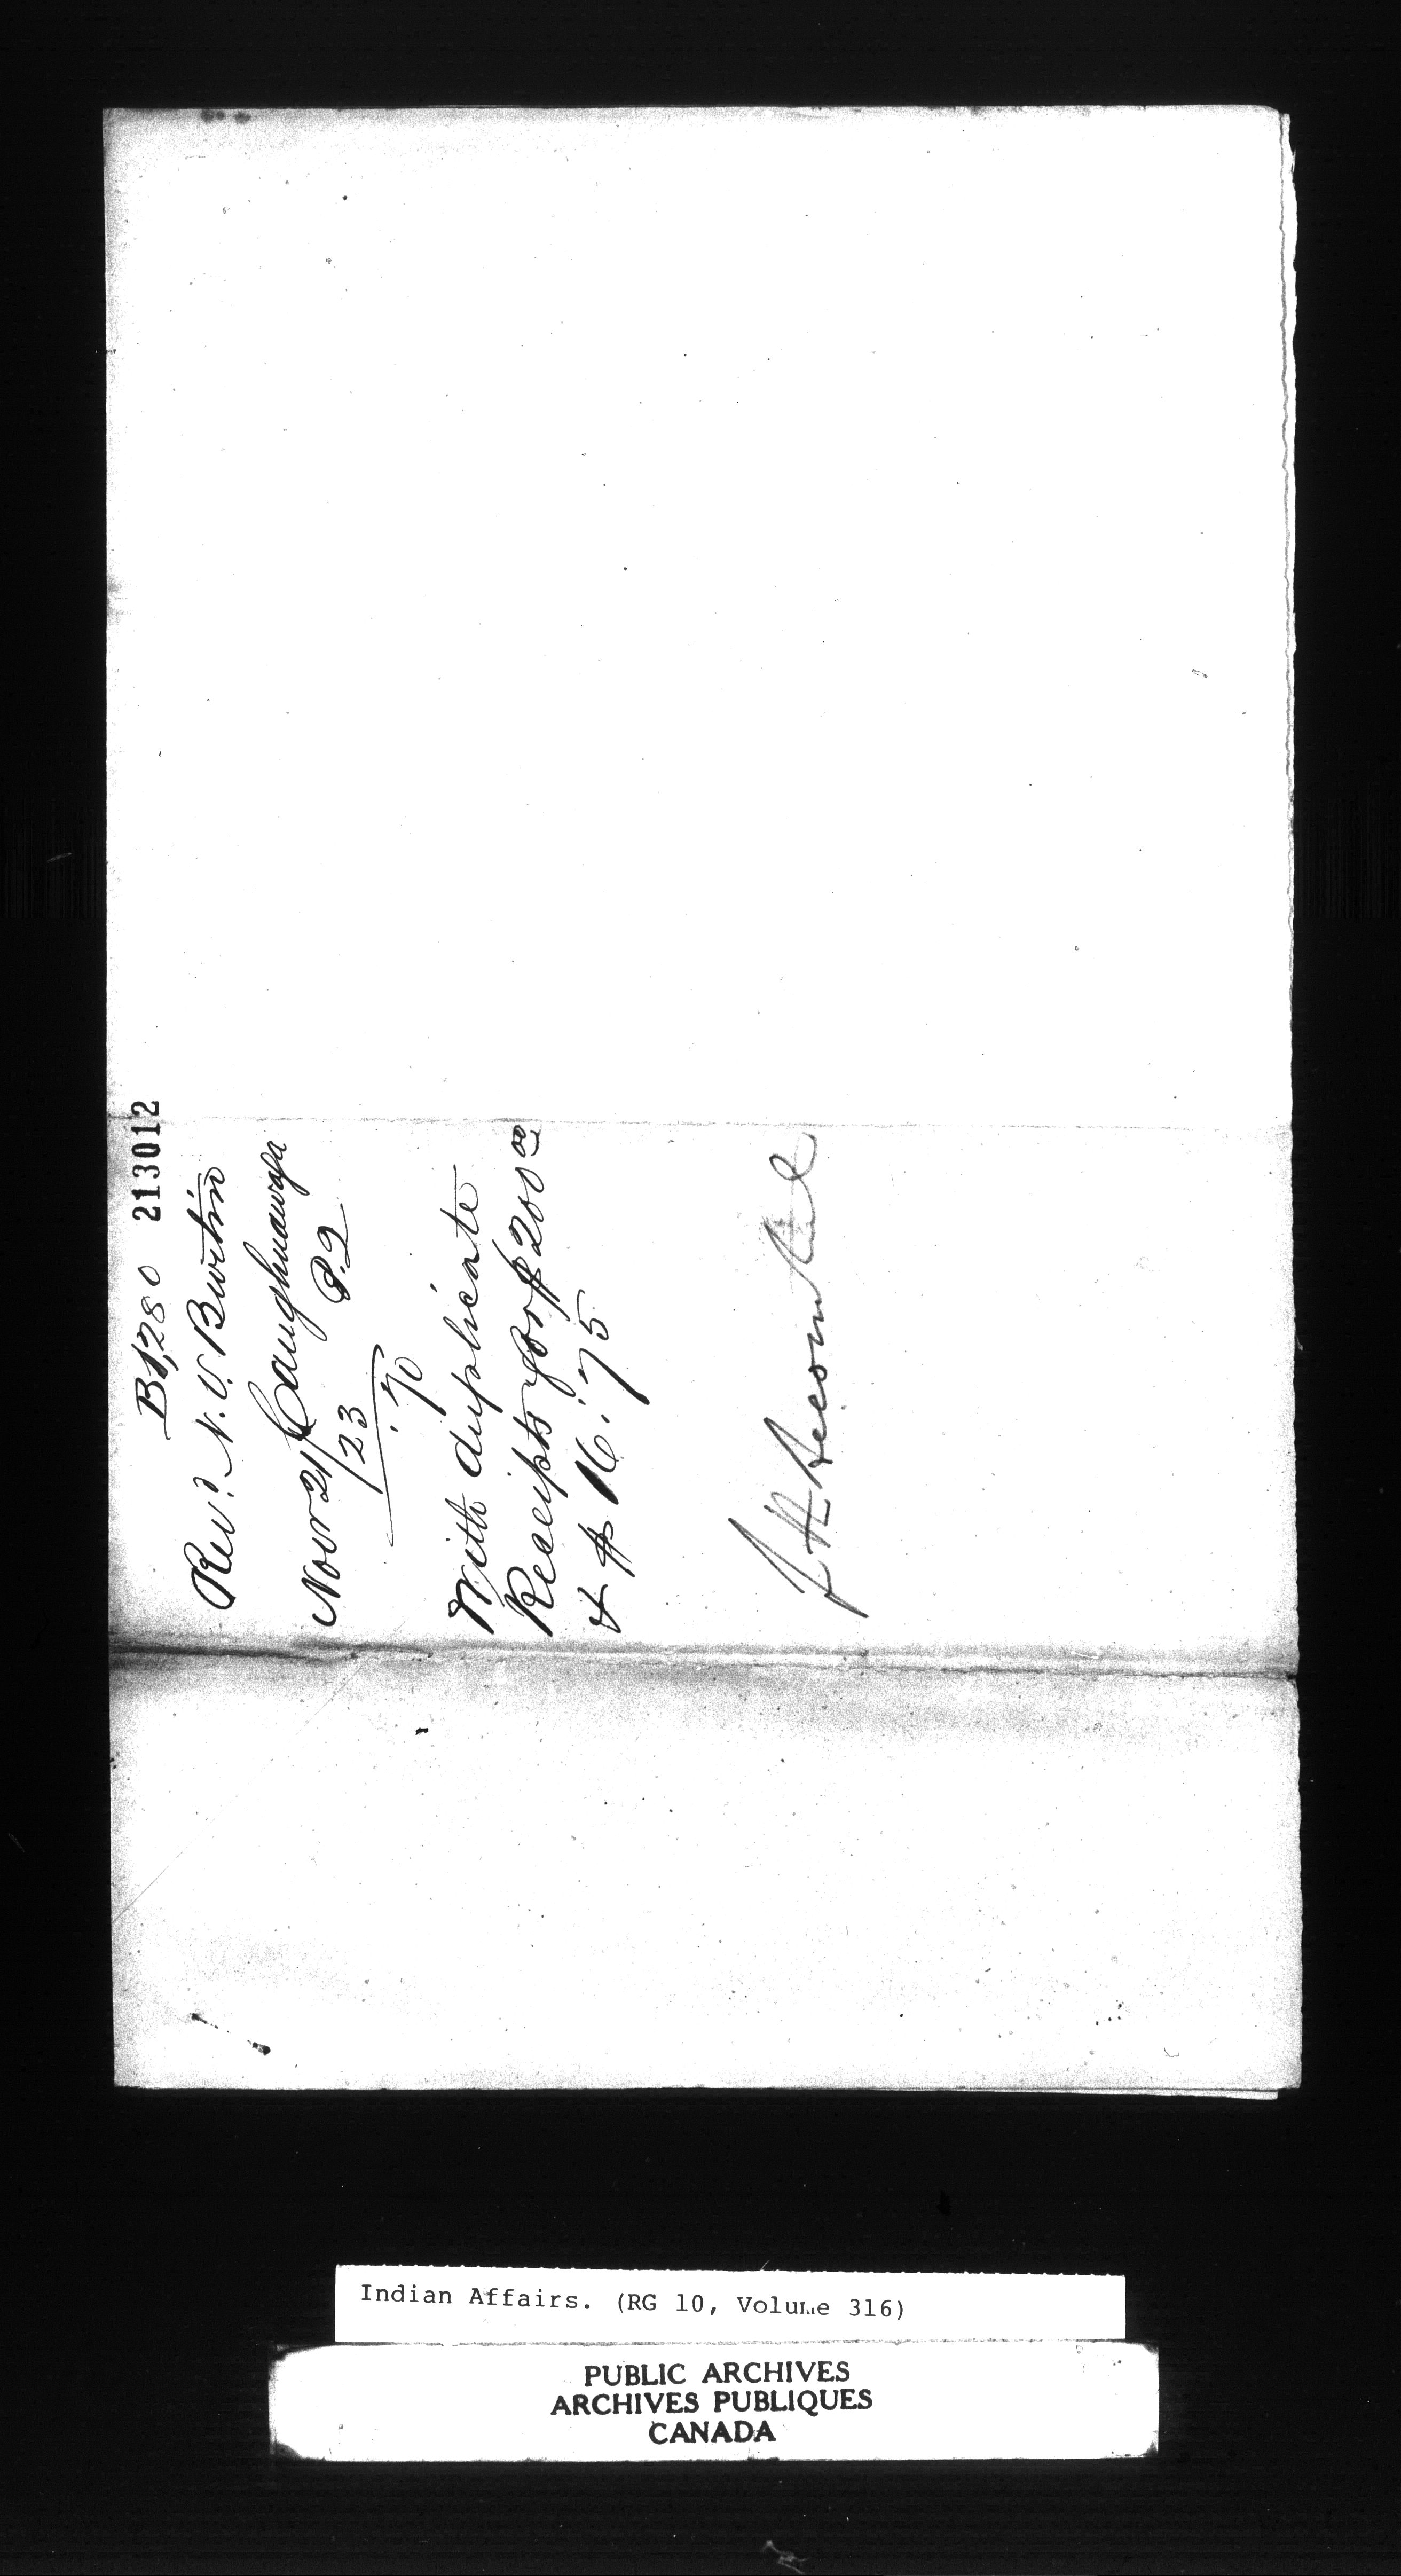 B1,280 213012
Revd. N. V. Burtin
Caughnawaga
P.Q
Novr 21/23
'70
With duplicate
Receipts for $200.00
& $16.75
Indian Affairs. (RG 10, Volume 316)
PUBLIC ARCHIVES
ARCHIVES PUBLIQUES
CANADA